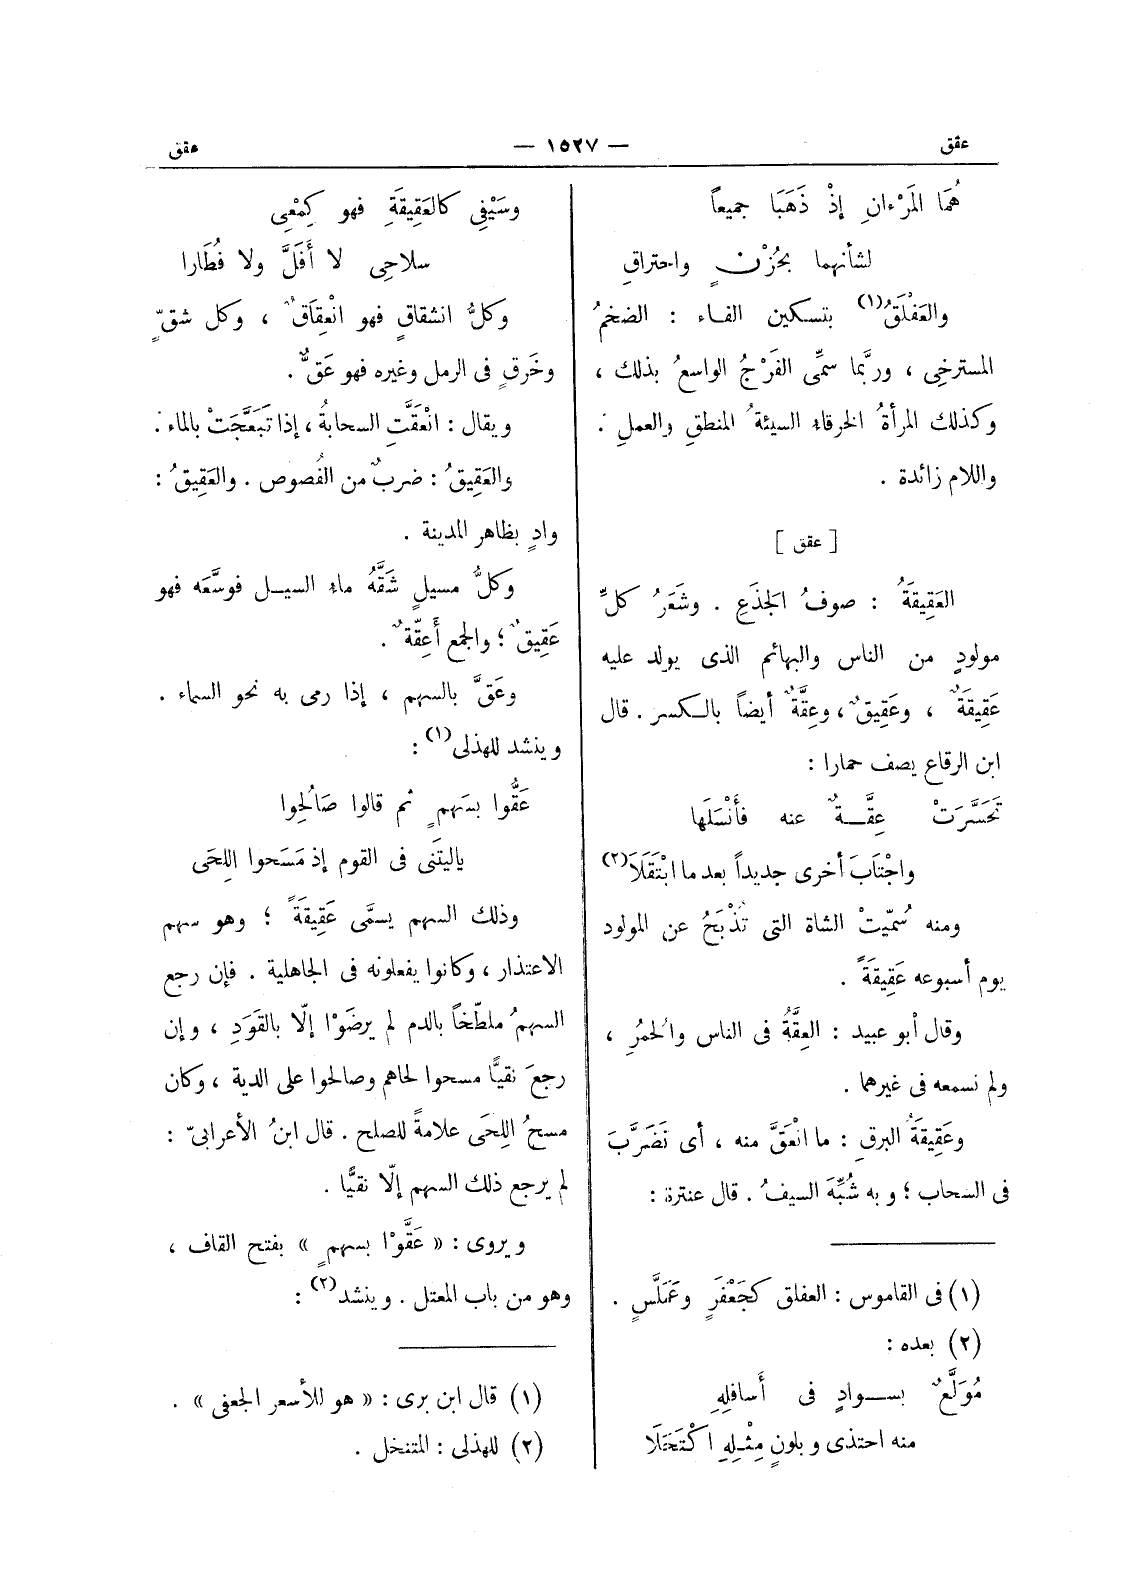 عقق — ١٥٢٧ — عقق
هُمَا المَرْءانِ إذْ ذَهَبَا جميعاً
لشأنهما بحُزْنٍ واحتراقِ
والعَفْلَقُ(١) بتسكين الفاء : الضخمُ
المسترخِى ، وربَّما سمِّى الفَرْجُ الواسعُ بذلك ،
وكذلك المرأةُ الخرقاء السيئةُ المنطقِ والعملِ .
واللام زائدة .
[ عقق ]
العَقِيقَةُ : صوفُ الجَذَعِ . وشَعَرُ كلِّ
مولودٍ من الناس والبهائم الذى يولد عليه
عَقِيقَةٌ ، وعَقِيقٌ ، وعِقَّةٌ أيضاً بالكسر . قال
ابن الرقاع يصف حمارا :
تَحَسَّرَتْ عِقَّةٌ عنه فأَنْسَلَها
واجْتَابَ أخرى جديداً بعد ما ابْتَقَلَا(٢)
ومنه سُمّيَت الشاة التى تُذْبَحُ عن المولود
يوم أسبوعه عَقِيقَةً .
وقال أبو عبيد : العِقَّةُ فى الناس والحُمُرِ ،
ولم نسمعه فى غيرهما .
وعَقِيقَةُ البرقِ : ما انْعَقَّ منه ، أى تَضَرَّبَ
فى السحاب ؛ وبه شُبِّهَ السيفُ . قال عنترة :
(١) فى القاموس : العفلق كجَعْفَرٍ وعَمَلَّسٍ .
(٢) بعده :
مُوَلَّعٌ بسوادٍ فى أَسافلِهِ
منه احتذى وبلونٍ مِثْلِهِ اكْتَحَلَا
وسَيْفِى كالعَقِيقَةِ فهو كِمْعِى
سلاحِى لا أَفَلَّ ولا فُطَارا
وكلُّ انشقاقٍ فهو انْعِقَاقٌ ، وكل شقٍّ
وخَرقٍ فى الرمل وغيره فهو عَقٌّ .
ويقال : انْعَقَّتِ السحابةُ ، إذا تَبَعَّجَتْ بالماء .
والعَقِيقُ : ضربٌ من الفُصوص . والعَقِيقُ :
وادٍ بظاهر المدينة .
وكلُّ مسيلٍ شَقَّهُ ماء السيل فوسَّعَه فهو
عَقِيقٌ ؛ والجمع أَعِقَّةٌ .
وعَقَّ بالسهم ، إذا رمى به نحو السماء .
وينشد للهذلى(١) :
عَقُّوا بسَهمٍ ثم قالوا صَالِحوا
ياليتَنى فى القوم إذ مَسَحوا اللِحَى
وذلك السهم يسمَّى عَقِيقَةً ؛ وهو سهم
الاعتذار ، وكانوا يفعلونه فى الجاهلية . فإن رجع
السهمُ ملطّخاً بالدم لم يرضَوْا إلّا بالقَوَدِ ، وإن
رجعَ نقيًّا مسحوا لحاهم وصالحوا على الدية ، وكان
مسحُ اللِحَى علامةً للصلح . قال ابنُ الأعرابىّ :
لم يرجع ذلك السهم إلّا نقيًّا .
ويروى : « عَقَّوْا بسهمٍ » بفتح القاف ،
وهو من باب المعتل . وينشد(٢) :
(١) قال ابن برى : « هو للأسعر الجعفى » .
(٢) للهذلى : المتنخل .